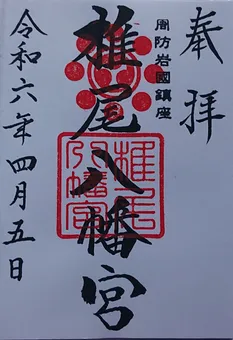 奉拝
周防岩國鎮座
椎尾八幡宮
椎尾八幡宮
令和六年四月五日